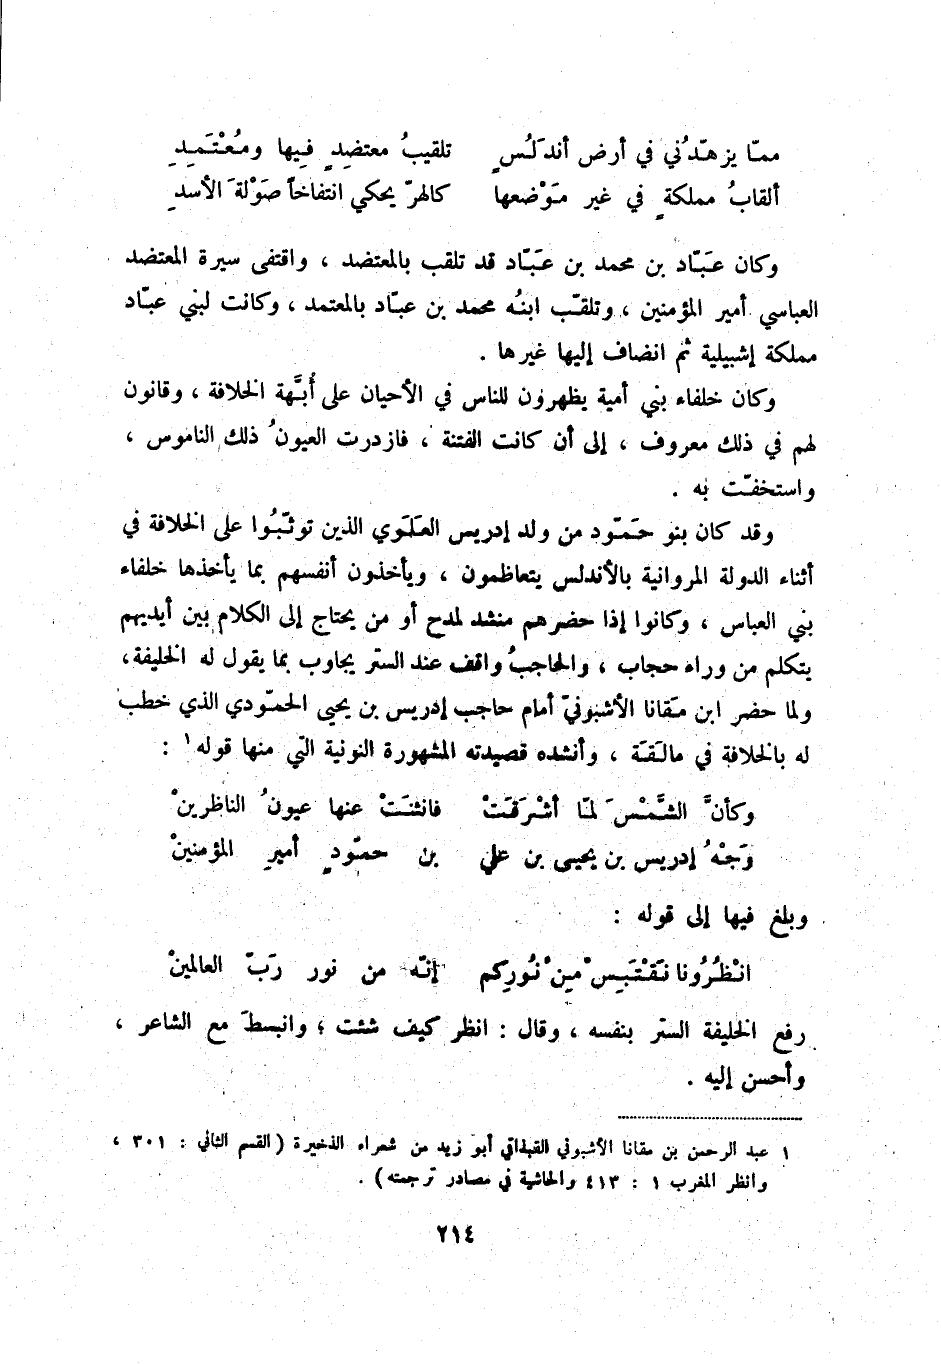 ممّا يزهّدُني في أرض أندَلُسٍ تلقيبُ معتضدٍ فيها ومُعْتَمِدِ
ألقابُ مملكةٍ في غير مَوْضعها كالهرّ يحكي انتفاخاً صَوْلةَ الأسدِ
وكان عَبّاد بن محمد بن عَبّاد قد تلقب بالمعتضد ، واقتفى سيرة المعتضد
العباسي أمير المؤمنين ، وتلقّب ابنُه محمد بن عبّاد بالمعتمد ، وكانت لبني عبّاد
مملكة إشبيلية ثم انضاف إليها غيرها .
وكان خلفاء بني أمية يظهرون للناس في الأحيان على أُبَّهة الخلافة ، وقانون
لهم في ذلك معروف ، إلى أن كانت الفتنة ، فازدرت العيونُ ذلك الناموس ،
واستخفّت به .
وقد كان بنو حَمّود من ولد إدريس العَلَوي الذين توثّبُوا على الخلافة في
أثناء الدولة المروانية بالأندلس يتعاظمون ، ويأخذون أنفسهم بما يأخذها خلفاء
بني العباس ، وكانوا إذا حضرهم منشد لمدح أو من يحتاج إلى الكلام بين أيديهم
يتكلم من وراء حجاب ، والحاجبُ واقف عند الستر يجاوب بما يقول له الخليفة ،
ولما حضر ابن مَقانا الأشبونيّ أمام حاجب إدريس بن يحيى الحمّودي الذي خطب
له بالخلافة في مالَقَة ، وأنشده قصيدته المشهورة النونية التي منها قوله ١ :
وكأنَّ الشَّمْسَ لمّا أشْرَقَتْ فانثنَتْ عنها عيونُ الناظرينْ
وَجْهُ إدريس بن يحيى بن علي بن حمّودٍ أميرِ المؤمنينْ
وبلغ فيها إلى قوله :
انْظُرُونا نَقْتَبِسْ مِنْ نُورِكم إنّه من نور رَبّ العالمينْ
رفع الخليفة الستر بنفسه ، وقال : انظر كيف شئت ؛ وانبسطَ مع الشاعر ،
وأحسن إليه .
١ عبد الرحمن بن مقانا الأشبوني القبذاقي أبو زيد من شعراء الذخيرة (القسم الثاني : ٣٠١ ،
وانظر المغرب ١ : ٤١٣ والحاشية في مصادر ترجمته) .
٢١٤